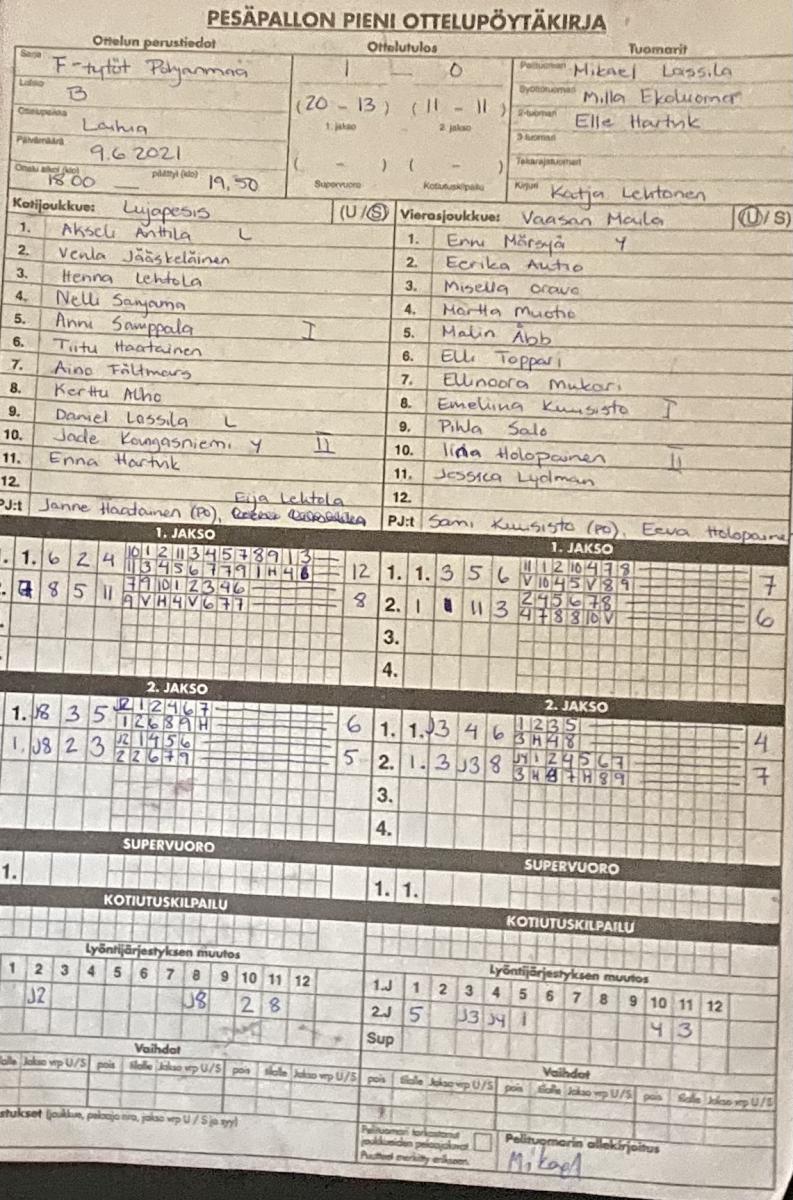 PESÄPALLON PIENI OTTELUPÖYTÄKIRJA
Ottelun perustiedot Ottelutulos Tuomarit
Sarja F-tytöt Pohjanmaa 1 — 0 Pelituomari Mikael Lassila
Lohko B Syöttötuomari Milla Ekoluoma
(20 - 13) (11 - 11) 2-tuomari Elle Hartvik
Ottelupaikka Laihia 1. jakso 2. jakso 3-tuomari
Päivämäärä 9.6 2021 ( - ) ( - ) Takarajatuomari
Ottelu alkoi (klo) 18 00 — päättyi (klo) 19,50 Supervuoro Kotiutuskilpailu Kirjuri Katja Lehtonen
Kotijoukkue: Lujapesis (U/S) Vierasjoukkue: Vaasan Maila (U/S)
1. Akseli Anttila L 1. Enni Y
2. Venla Jääskeläinen 2. Eerika Autio
3. Henna Lehtola 3. Misella Orava
4. Nelli Sanjama 4. Martta Muotio
5. Anni Samppala I 5. Malin Åbb
6. Tiitu Haatainen 6. Elli Toppari
7. Aino Fältmars 7. Ellinoora Mukari
8. Kerttu Alho 8. Emeliina Kuusisto I
9. Daniel Lassila L 9. Pihla Salo
10. Jade Kangasniemi Y II 10. Iida Holopainen II
11. Enna Hartvik 11. Jessica Lydman
12. 12.
PJ:t Janne Haatainen (PO), Eija Lehtola PJ:t Sami Kuusisto (PO), Eeva Holopaine
1. JAKSO 1. JAKSO
1. 6 2 4 10 1 2 11 3 4 5 7 8 9 1 3 12 1. 1. 3 5 6 11 1 2 10 4 7 8 7
11 3 4 5 6 7 7 9 1 H 4 6 V 10 4 5 V 8 9
8 5 11 7 9 10 1 2 3 4 6 8 2. 1 11 3 2 4 5 6 7 8 6
9 V H 4 V 6 7 7 4 7 8 8 10 V
3.
4.
2. JAKSO 2. JAKSO
1. J8 3 5 J2 1 2 4 6 7 6 1. 1. J3 4 6 1 2 3 5 4
1 2 6 8 9 H 3 H 4 8
1. J8 2 3 J2 1 4 5 6 5 2. 1. 3 J3 8 J4 1 2 4 5 6 7 7
2 2 6 7 9 3 H 4 7 H 8 9
3.
4.
SUPERVUORO SUPERVUORO
1. 1. 1.
KOTIUTUSKILPAILU KOTIUTUSKILPAILU
Lyöntijärjestyksen muutos Lyöntijärjestyksen muutos
1 2 3 4 5 6 7 8 9 10 11 12 1.J 1 2 3 4 5 6 7 8 9 10 11 12
J2 J8 2 8 2.J 5 J3 J4 1 4 3
Sup
Vaihdot Vaihdot
tilalle Jakso vrp U/S pois tilalle Jakso vrp U/S pois tilalle Jakso vrp U/S pois tilalle Jakso vrp U/S pois tilalle Jakso vrp U/S pois tilalle Jakso vrp U/S
stukset (joukkue, pelaaja nro, jakso vrp U / S ja syy)
Pelituomari tarkastanut
joukkueiden pelaajaluvat
Puutteet merkitty erikseen.
Pelituomarin allekirjoitus
Mikael